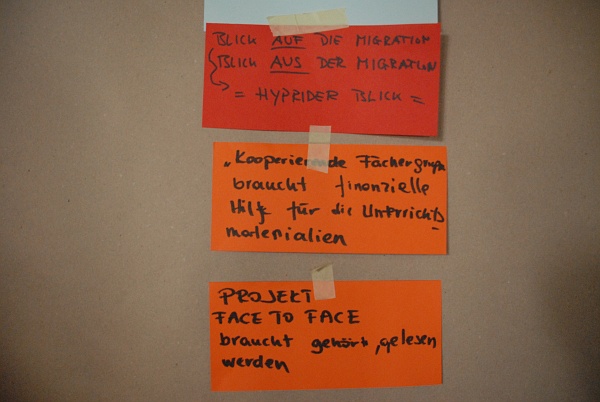 BLICK AUF DIE MIGRATION
BLICK AUS DER MIGRATION
= HYPRIDER BLICK =
„Kooperierende Fächergruppe
braucht finanzielle
Hilfe für die Unterrichts-
materialien
PROJEKT
FACE TO FACE
braucht gehört, gelesen
werden